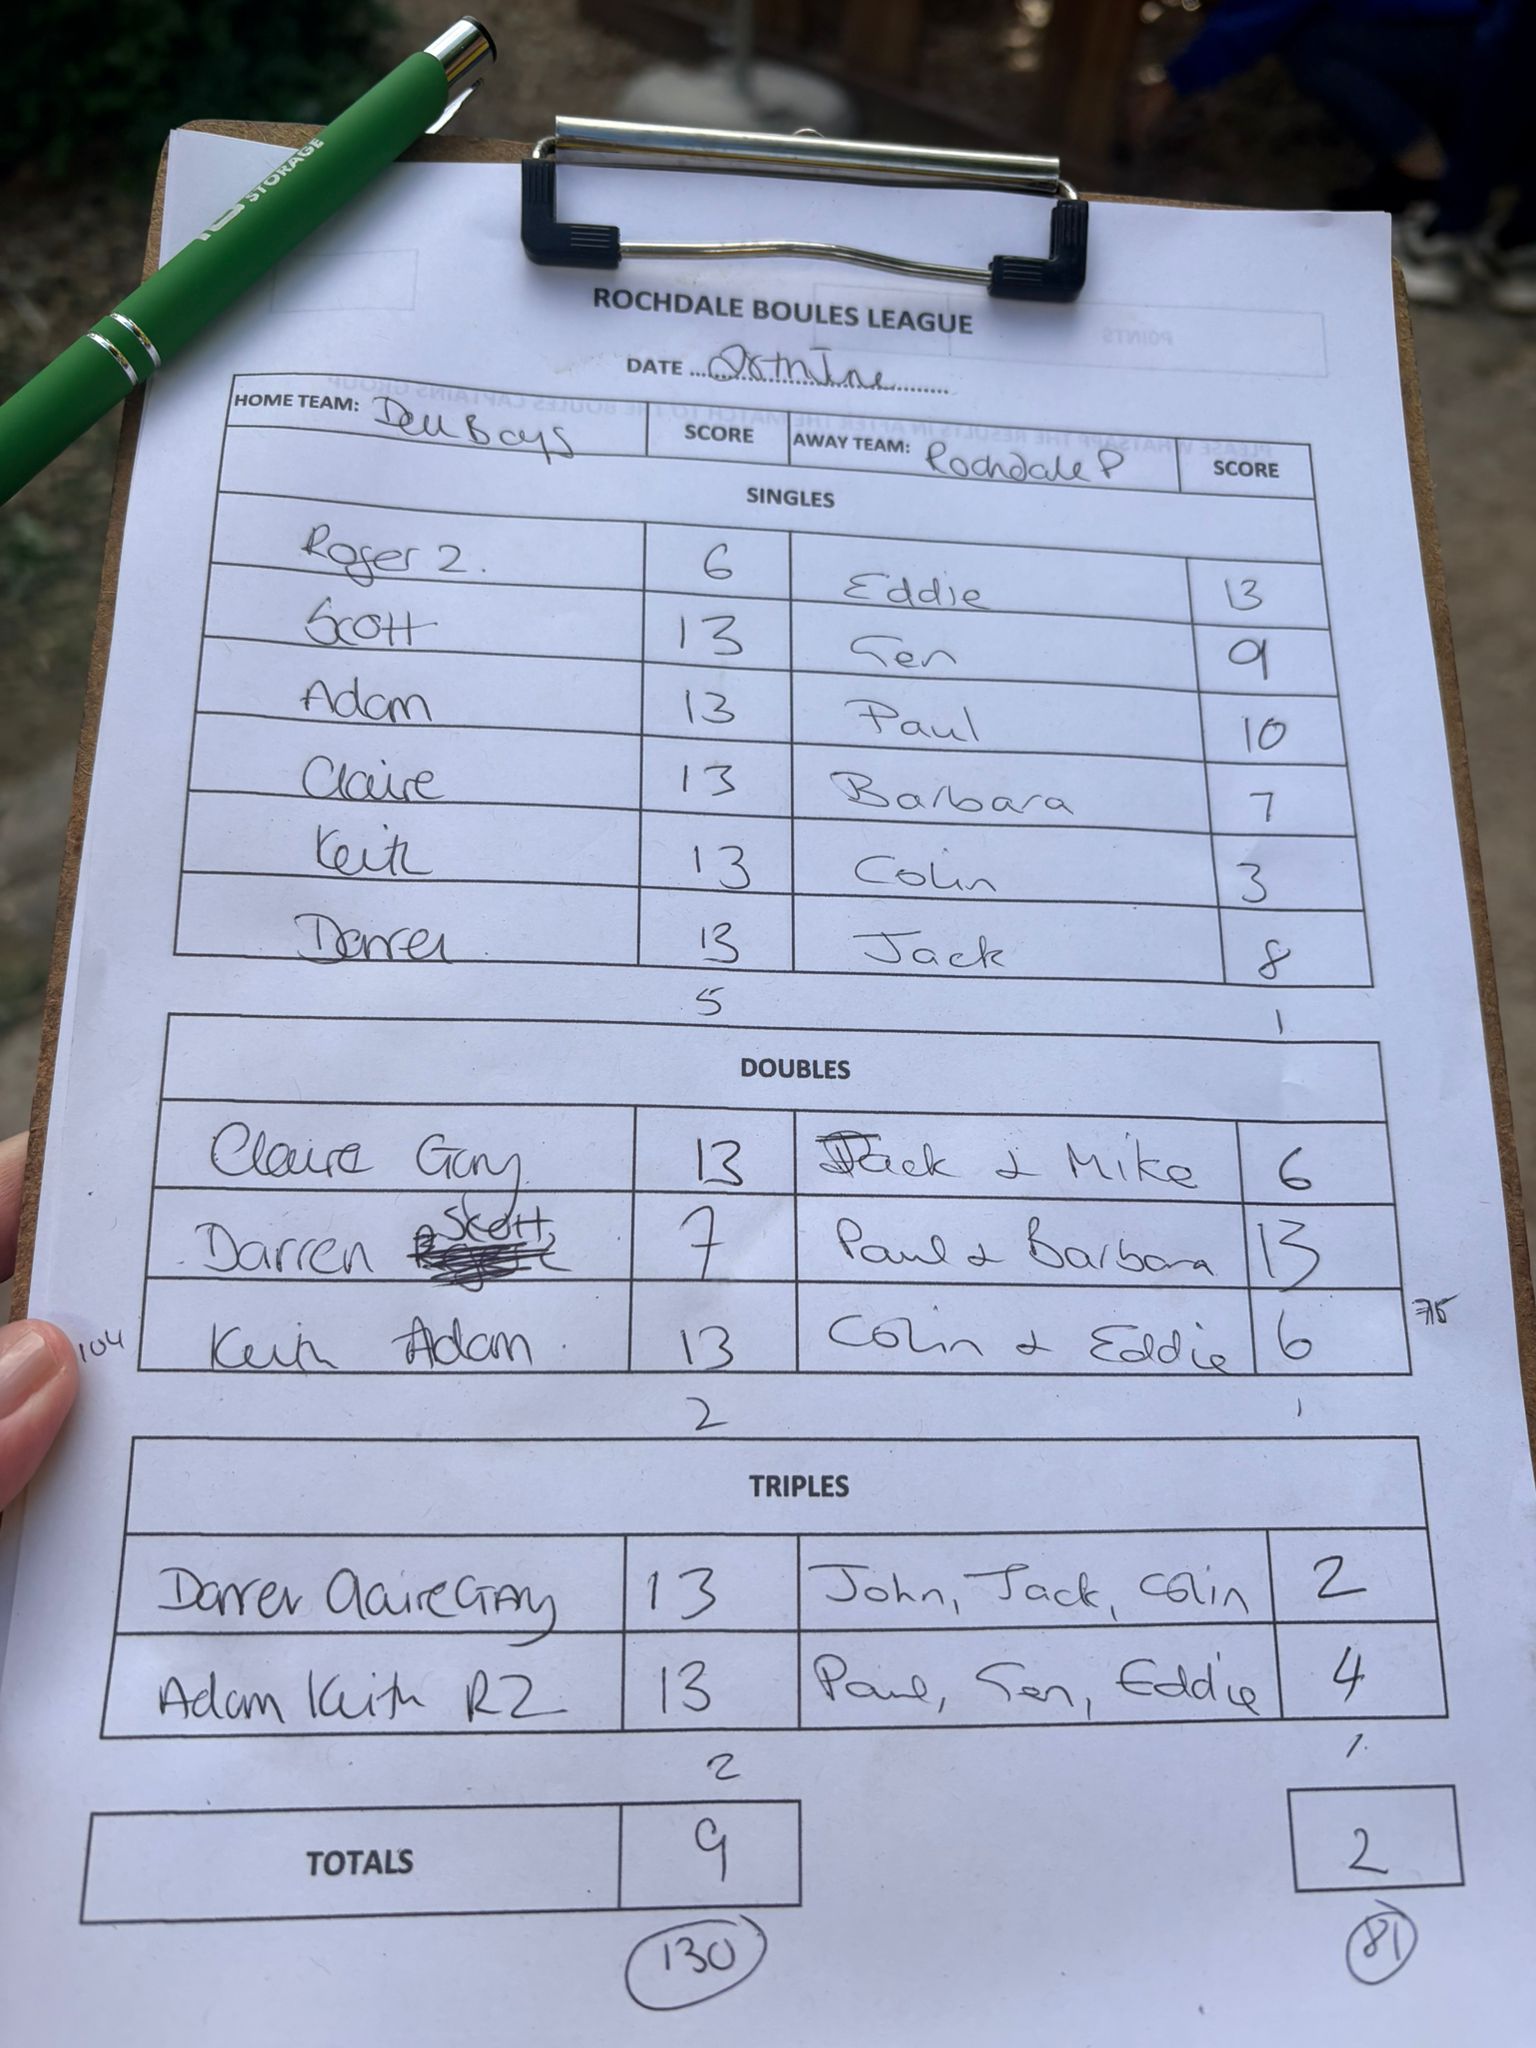 STORAGE
ROCHDALE BOULES LEAGUE
POINTS
DATE
PLEASE WHATSAPP THE RESULTS IN AFTER THE MATCH TO THE BOULES CAPTAINS GROUP
HOME TEAM: Dell Boys SCORE AWAY TEAM: Rochdale P SCORE
SINGLES
Roger 2. 6 Eddie 13
Scott 13 Gen 9
Adam 13 Paul 10
Claire 13 Barbara 7
Keith 13 Colin 3
Darren 13 Jack 8
5 1
DOUBLES
Claire Gary 13 Jack & Mike 6
Darren Scott 7 Paul & Barbara 13
104 Keith Adam 13 Colin & Eddie 6 75
2 1
TRIPLES
Darren Claire Gary 13 John, Jack, Colin 2
Adam Keith R2 13 Paul, Gen, Eddie 4
2 1
TOTALS 9 2
130 81